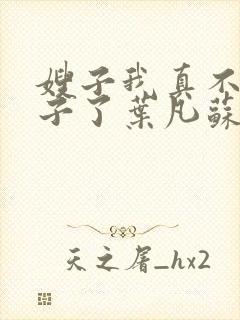 嫂子我真不
子了葉凡蘇
天之屠_hx2